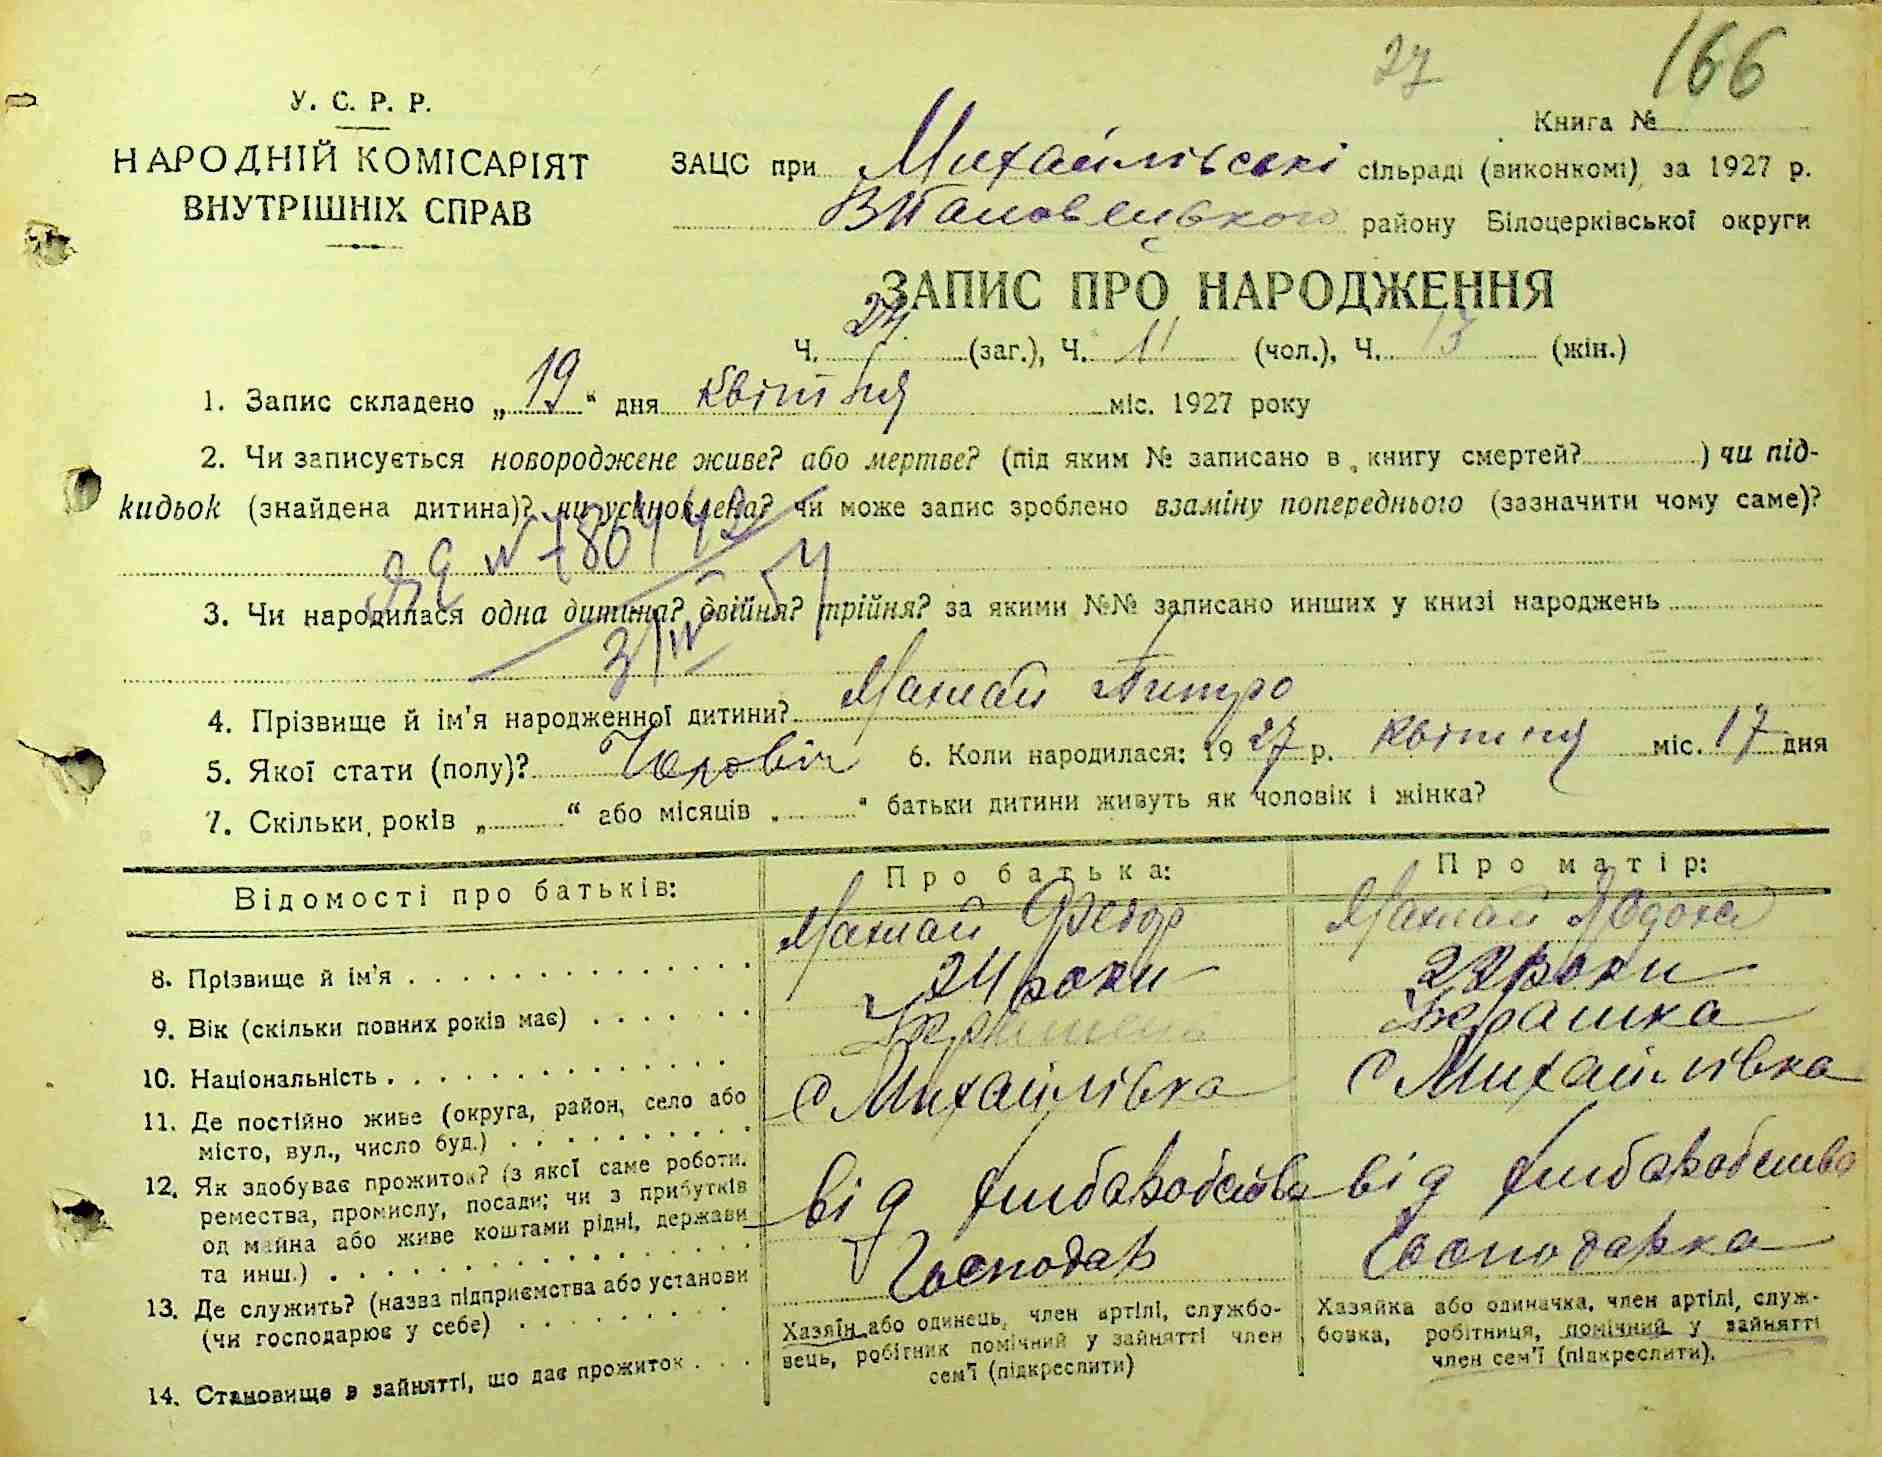 27 166
У. С. Р. Р.
Книга №
НАРОДНІЙ КОМІСАРІЯТ
ВНУТРІШНІХ СПРАВ
ЗАЦС при Михайлівські сільраді (виконкомі) за 1927 р.
району Білоцерківської округи
ЗАПИС ПРО НАРОДЖЕННЯ
Ч. 24 (заг.), Ч. 11 (чол.), Ч. 13 (жін.)
1. Запис складено „19“ дня квітня міс. 1927 року
2. Чи записується новороджене живе? або мертве? (під яким № записано в книгу смертей? ) чи під-
кидьок (знайдена дитина)? чи усиновлена? чи може запис зроблено взаміну попереднього (зазначити чому саме)?
3. Чи народилася одна дитина? двійня? трійня? за якими №№ записано инших у книзі народжень
4. Прізвище й ім'я народженної дитини? Махлай Питро
5. Якої стати (полу)? Чоловіч 6. Коли народилася: 19 27 р. квітня міс. 17 дня
7. Скільки років „ “ або місяців „ “ батьки дитини живуть як чоловік і жінка?
Відомості про батьків: Про батька: Про матір:
8. Прізвище й ім'я Махлай Федор Махлай
9. Вік (скільки повних років має) 24 роки 22 роки
10. Національність
11. Де постійно живе (округа, район, село або
місто, вул., число буд.) с Михайлівка с Михайлівка
12. Як здобуває прожиток? (з якої саме роботи,
ремества, промислу, посади; чи з прибутків
од майна або живе коштами рідні, держави
та инш.) від хлібаробства від хлібаробства
13. Де служить? (назва підприємства або установи
(чи господарює у себе) Господар Господарка
14. Становище в зайнятті, що дає прожиток
Хазяїн або одинець, член артілі, службо-
вець, робітник помічний у зайнятті член
сем'ї (підкреслити)
Хазяйка або одиначка, член артілі, служ-
бовка, робітниця, помічний у зайнятті
член сем'ї (підкреслити).